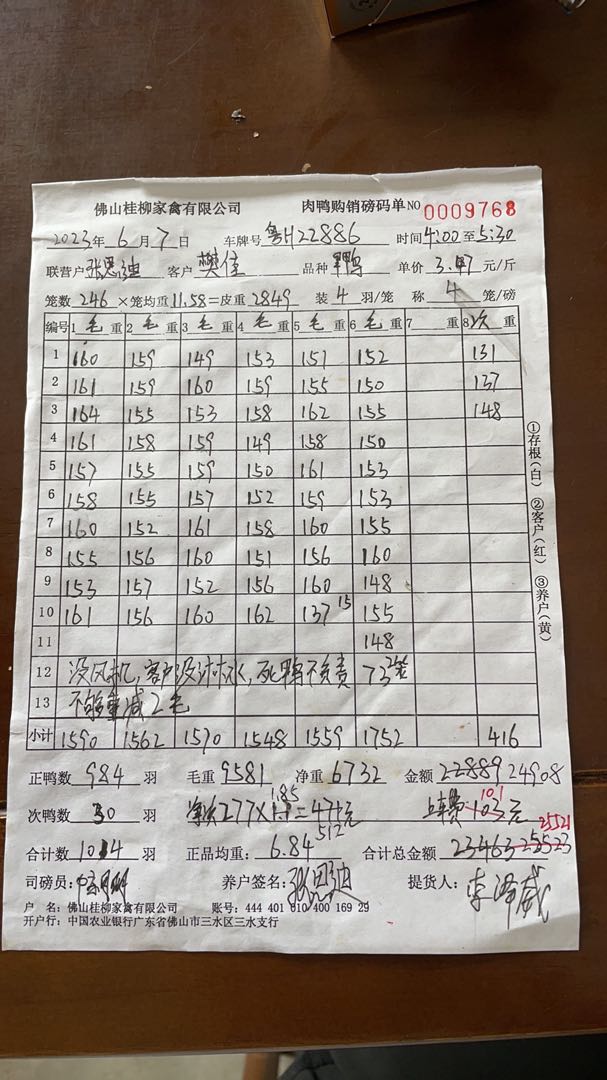 佛山桂柳家禽有限公司 肉鸭购销磅码单 NO 0009768
2023年 6月 7日 车牌号 粤H22886 时间 4:00 至 5:30
联营户 张思迪 客户 樊佳 品种 鸭 单价 元/斤
笼数 246 ×笼均重 11.58 =皮重 2849 装 4 羽/笼 称 4 笼/磅
编号 1 毛 重 2 毛 重 3 毛 重 4 毛 重 5 毛 重 6 毛 重 7 重 8 次 重
1 160 159 149 153 157 152 131
2 161 159 160 159 155 150 137
3 164 155 153 158 162 155 148
4 161 158 159 149 158 150
5 157 155 159 150 161 153
6 158 155 157 152 159 153
7 160 152 161 158 160 155
8 155 156 160 151 156 160
9 153 157 152 156 160 148
10 161 156 160 162 137 15 155
11 148
12 没风机,客户没 水,死鸭不负责 73
13 不够重减2毛
小计 1590 1562 1570 1548 1559 1752 416
正鸭数 984 羽 毛重 9581 净重 6732 金额 22889 24908
次鸭数 30 羽 277× 1.85 = 元 512 费 103 101 元
合计数 1014 羽 正品均重: 6.84 合计总金额 23463 25523 25521
司磅员: 养户签名: 张思迪 提货人: 李泽威
户 名: 佛山桂柳家禽有限公司 账号: 444 401 010 400 169 29
开户行: 中国农业银行广东省佛山市三水区三水支行
①存根(白) ②客户(红) ③养户(黄)